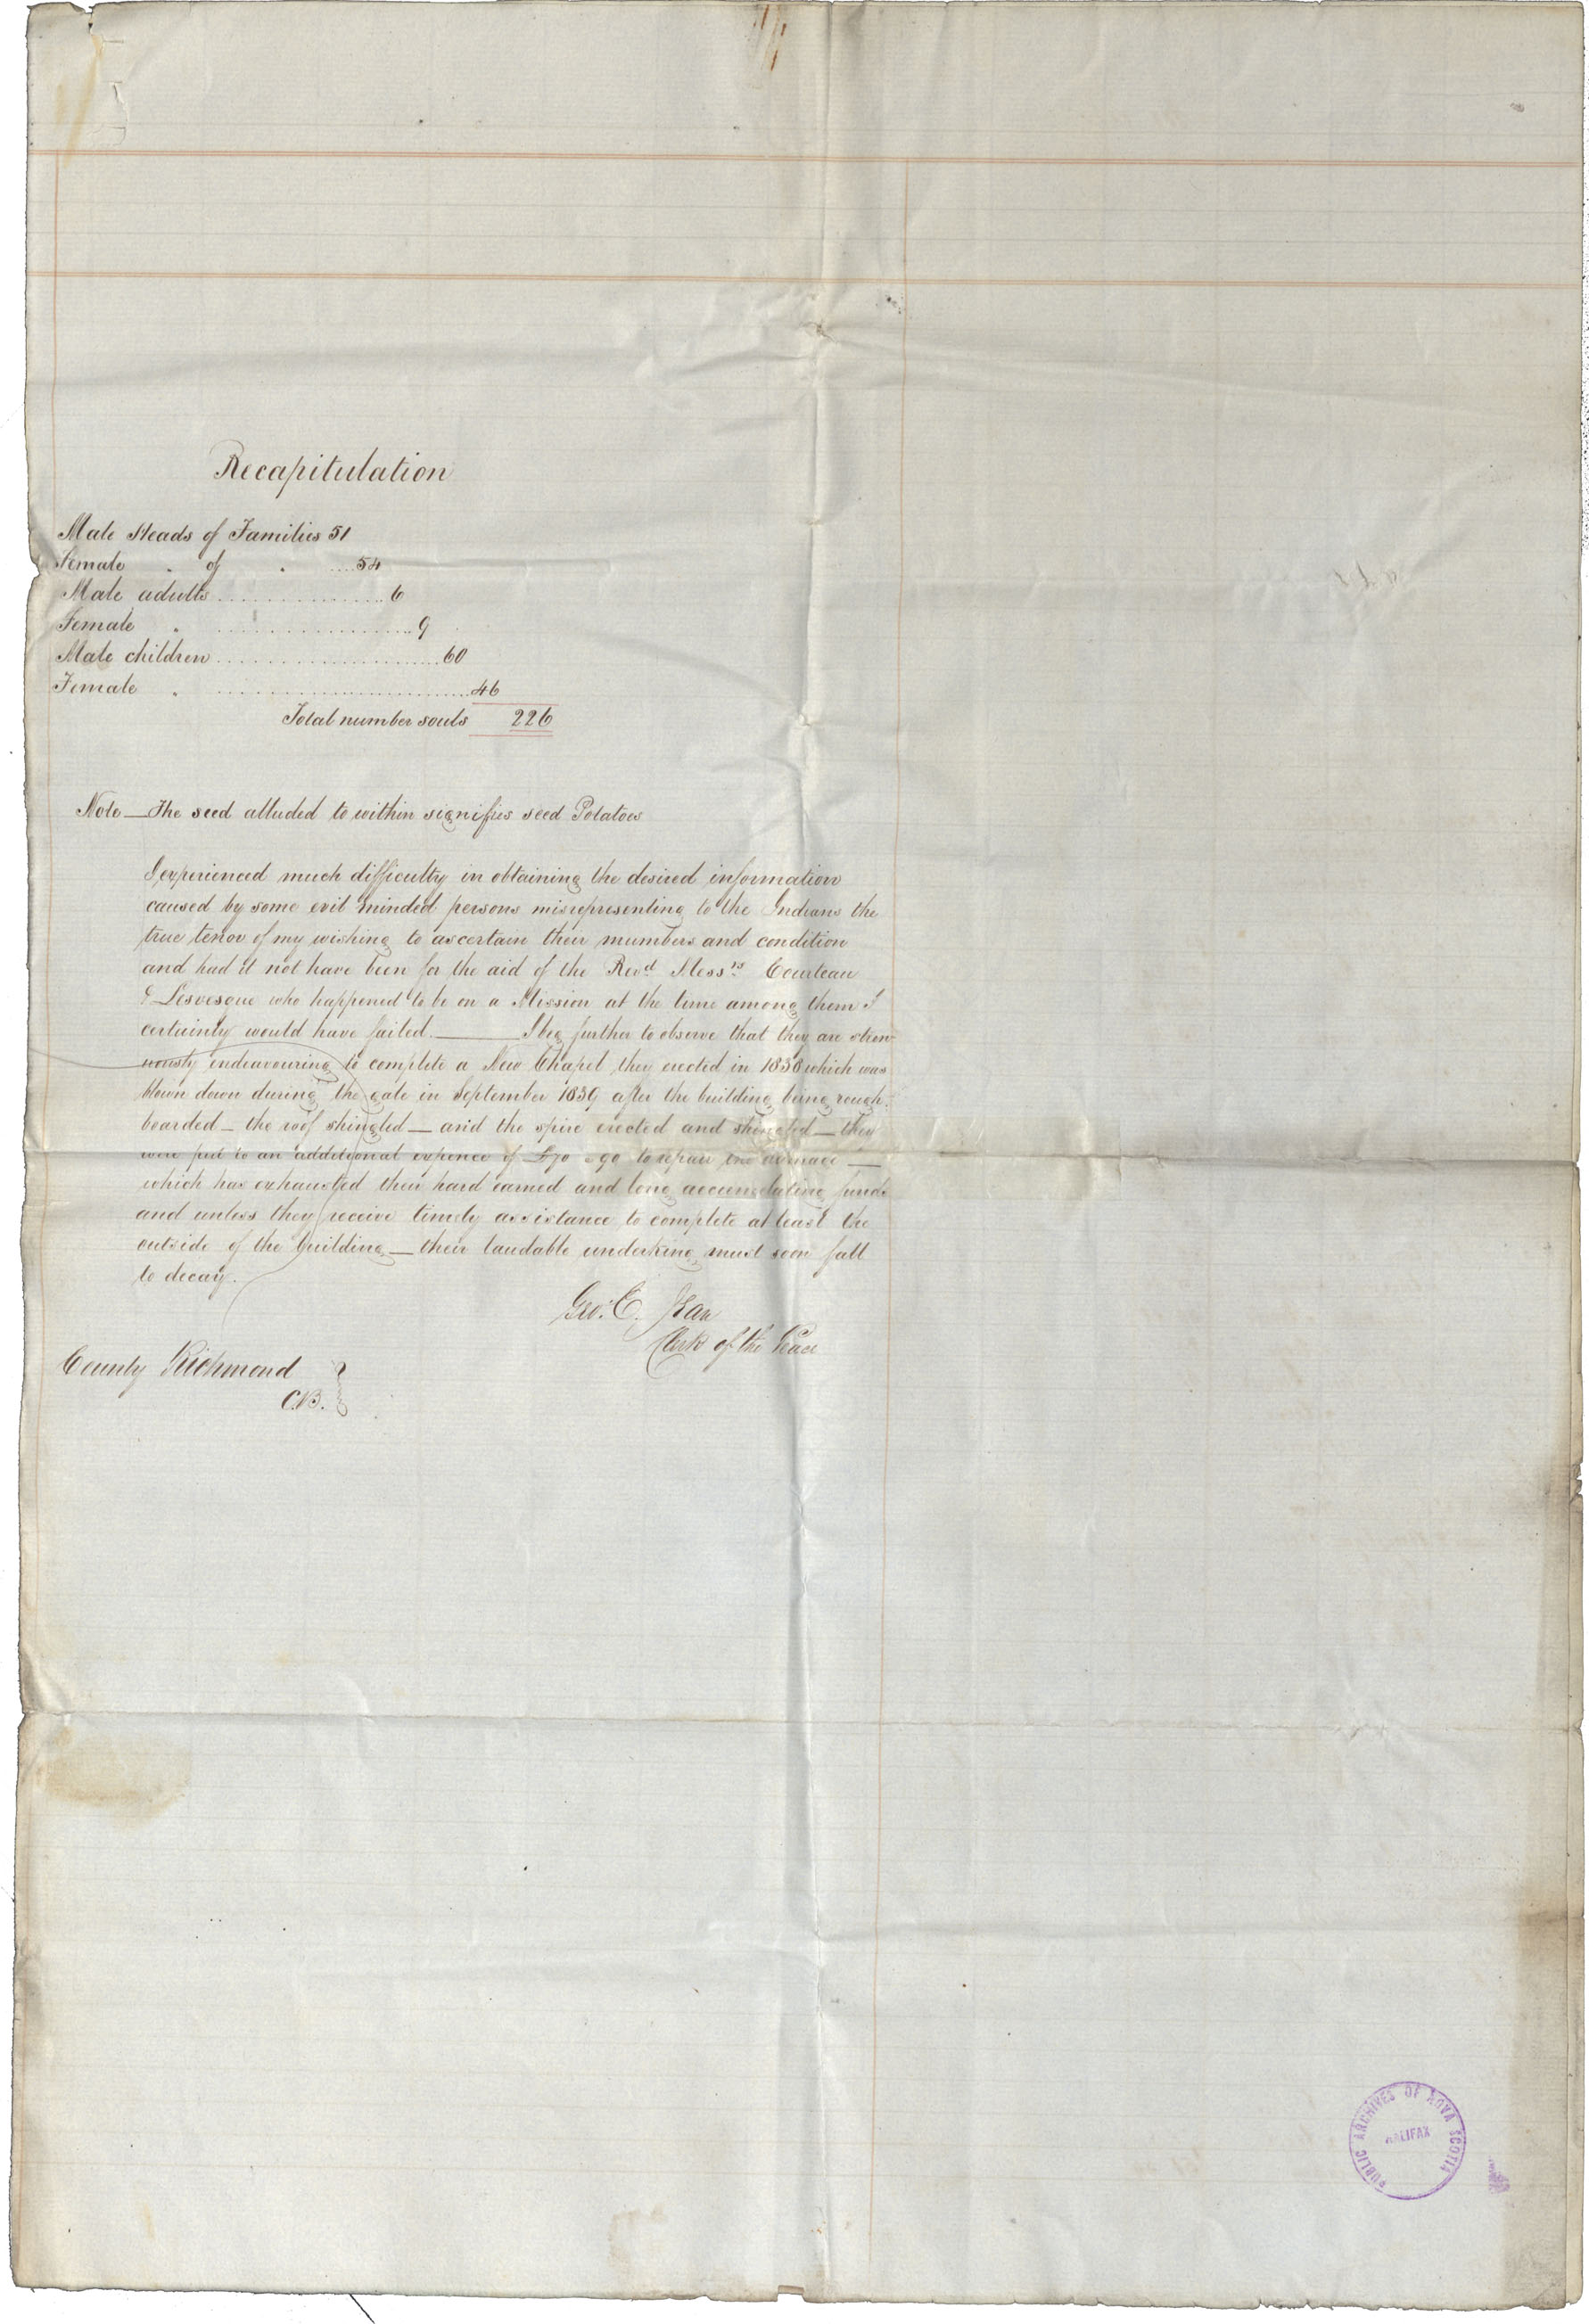 Recapitulation
Male Heads of Families 51
Female " of " ....54
Male adults ................ 6
Female " .................. 9
Male children ..................... 60
Female " ........................ 46
Total number souls 226
Note — The seed alluded to within signifies seed Potatoes
I experienced much difficulty in obtaining the desired information
caused by some evil minded persons misrepresenting to the Indians the
true tenor of my wishing to ascertain their numbers and condition
and had it not have been for the aid of the Revd Messrs Courteau
& Lesvesque who happened to be on a Mission at the time among them I
certainly would have failed. — I beg further to observe that they are stren-
uously endeavouring to complete a New Chapel they erected in 1838 which was
blown down during the gale in September 1839 after the building being rough-
boarded — the roof shingled — and the spire erected and shingled — they
were put to an additional expence of £70 a 90 to repair the damage —
which has exhausted their hard earned and long accumulating funds
and unless they receive timely assistance to complete at least the
outside of the building — their laudable underking must soon fall
to decay.
Geo: E. Jean
Clerk of the Peace
County Richmond
C.B.
PUBLIC ARCHIVES OF NOVA SCOTIA
HALIFAX